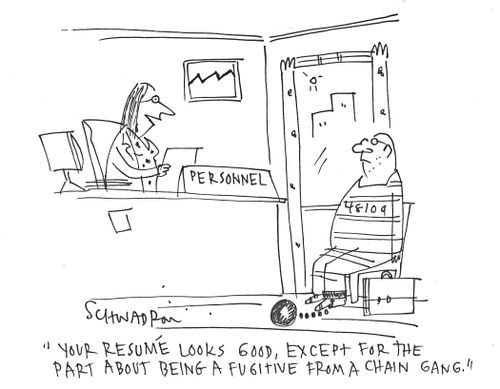 PERSONNEL
48109
SCHWADRON
"YOUR RESUMÉ LOOKS GOOD, EXCEPT FOR THE
PART ABOUT BEING A FUGITIVE FROM A CHAIN GANG."